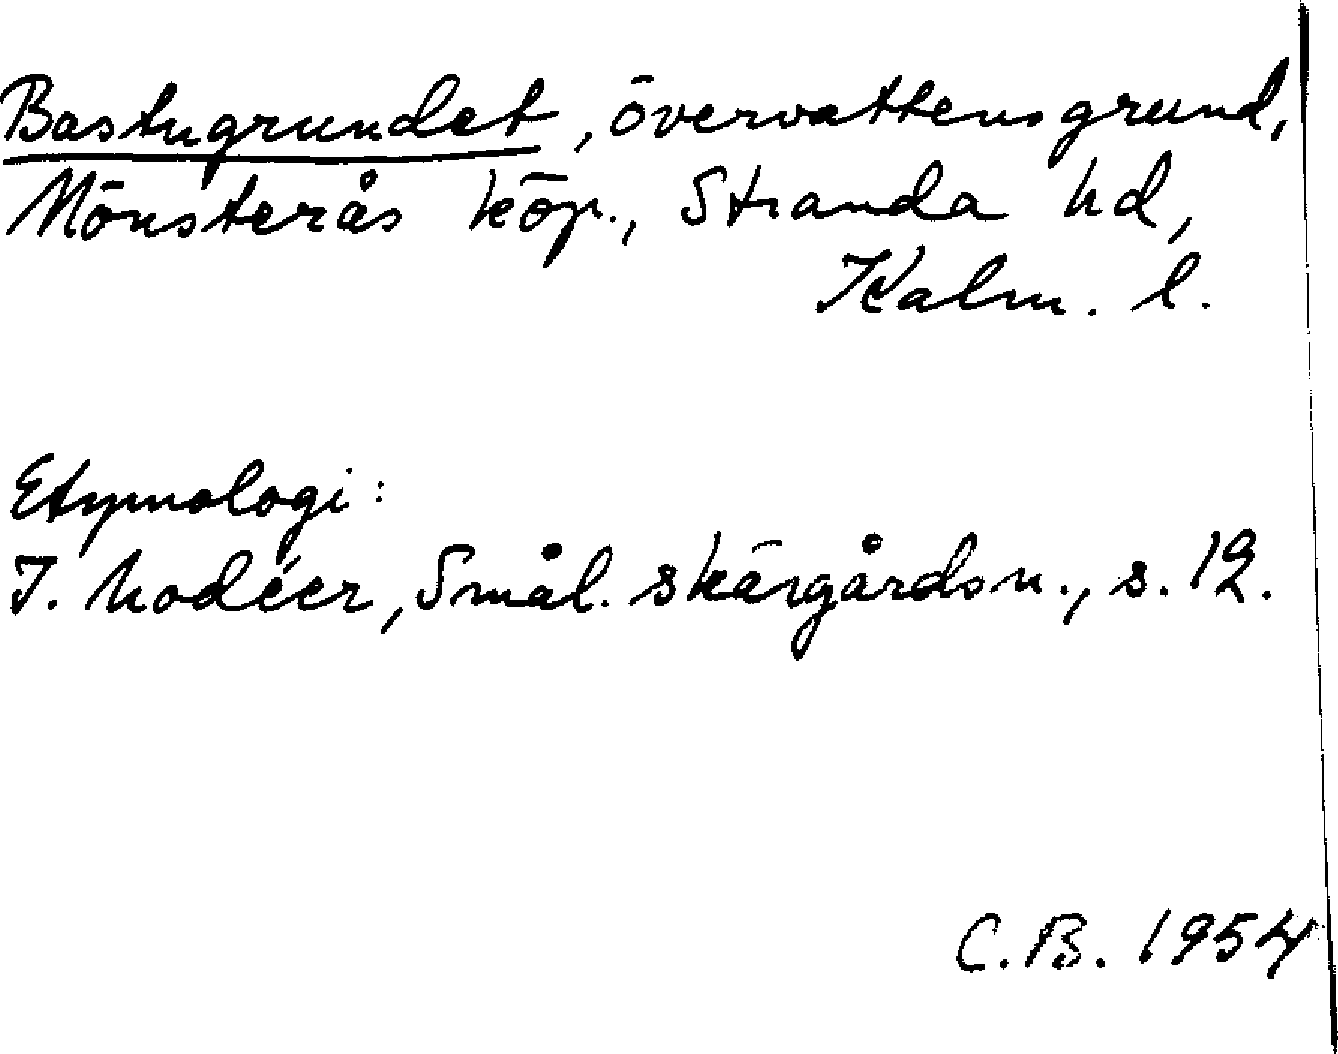 Bastugrundet, övervattensgrund,
Mönsterås köp., Stranda hd,
Kalm. l.
Etymologi:
I. Modéer, Smål. skärgårdsn., s. 12.
C.B. 1954